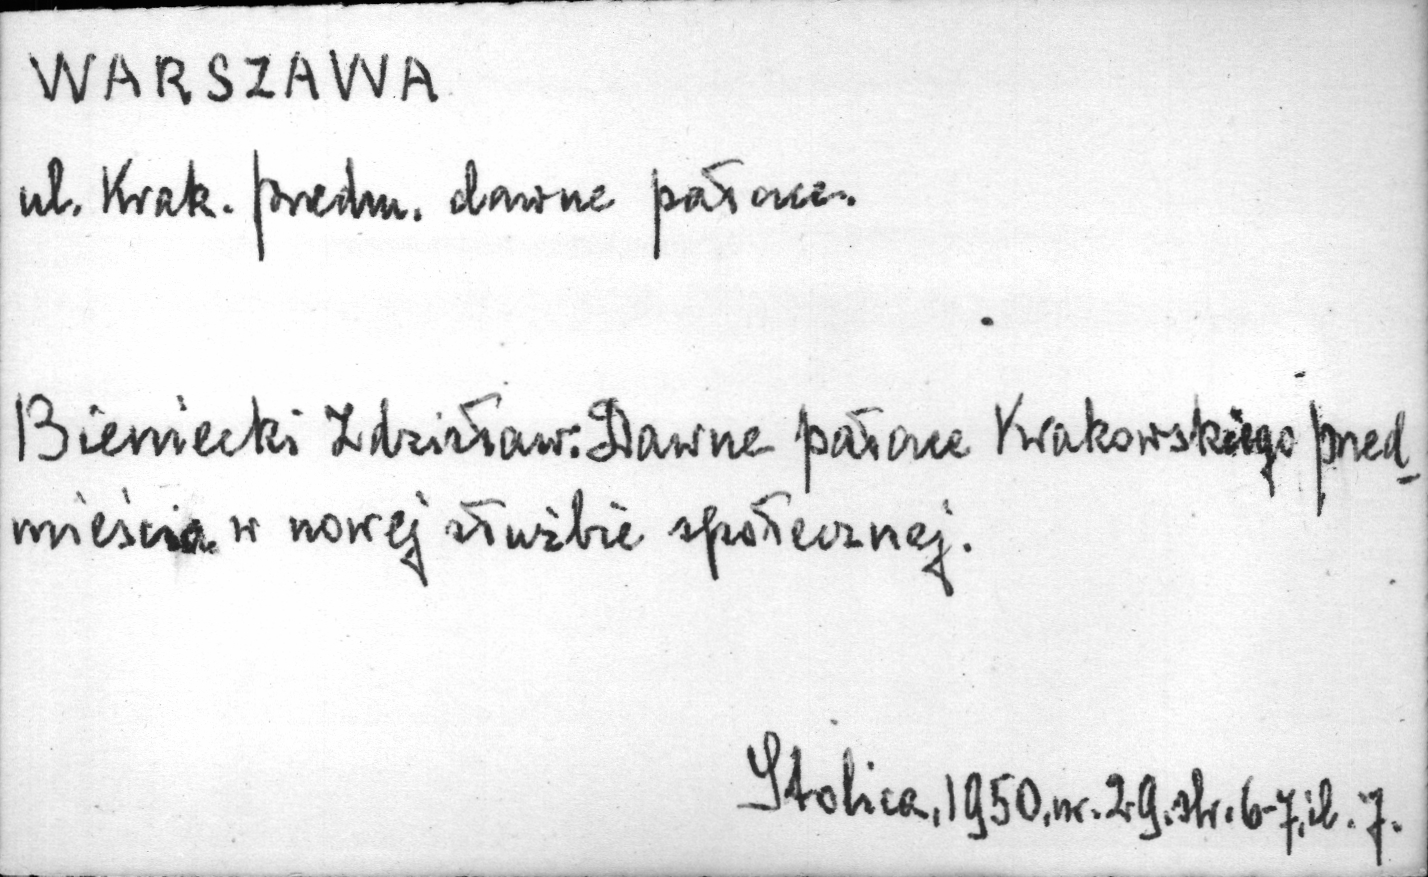 WARSZAWA
ul. Krak. przedm. dawne pałace.
Bieniecki Zdzisław: Dawne pałace Krakowskiego przed-
mieścia w nowej służbie społecznej.
Stolica, 1950, nr. 29, str. 6-7, il. 7.